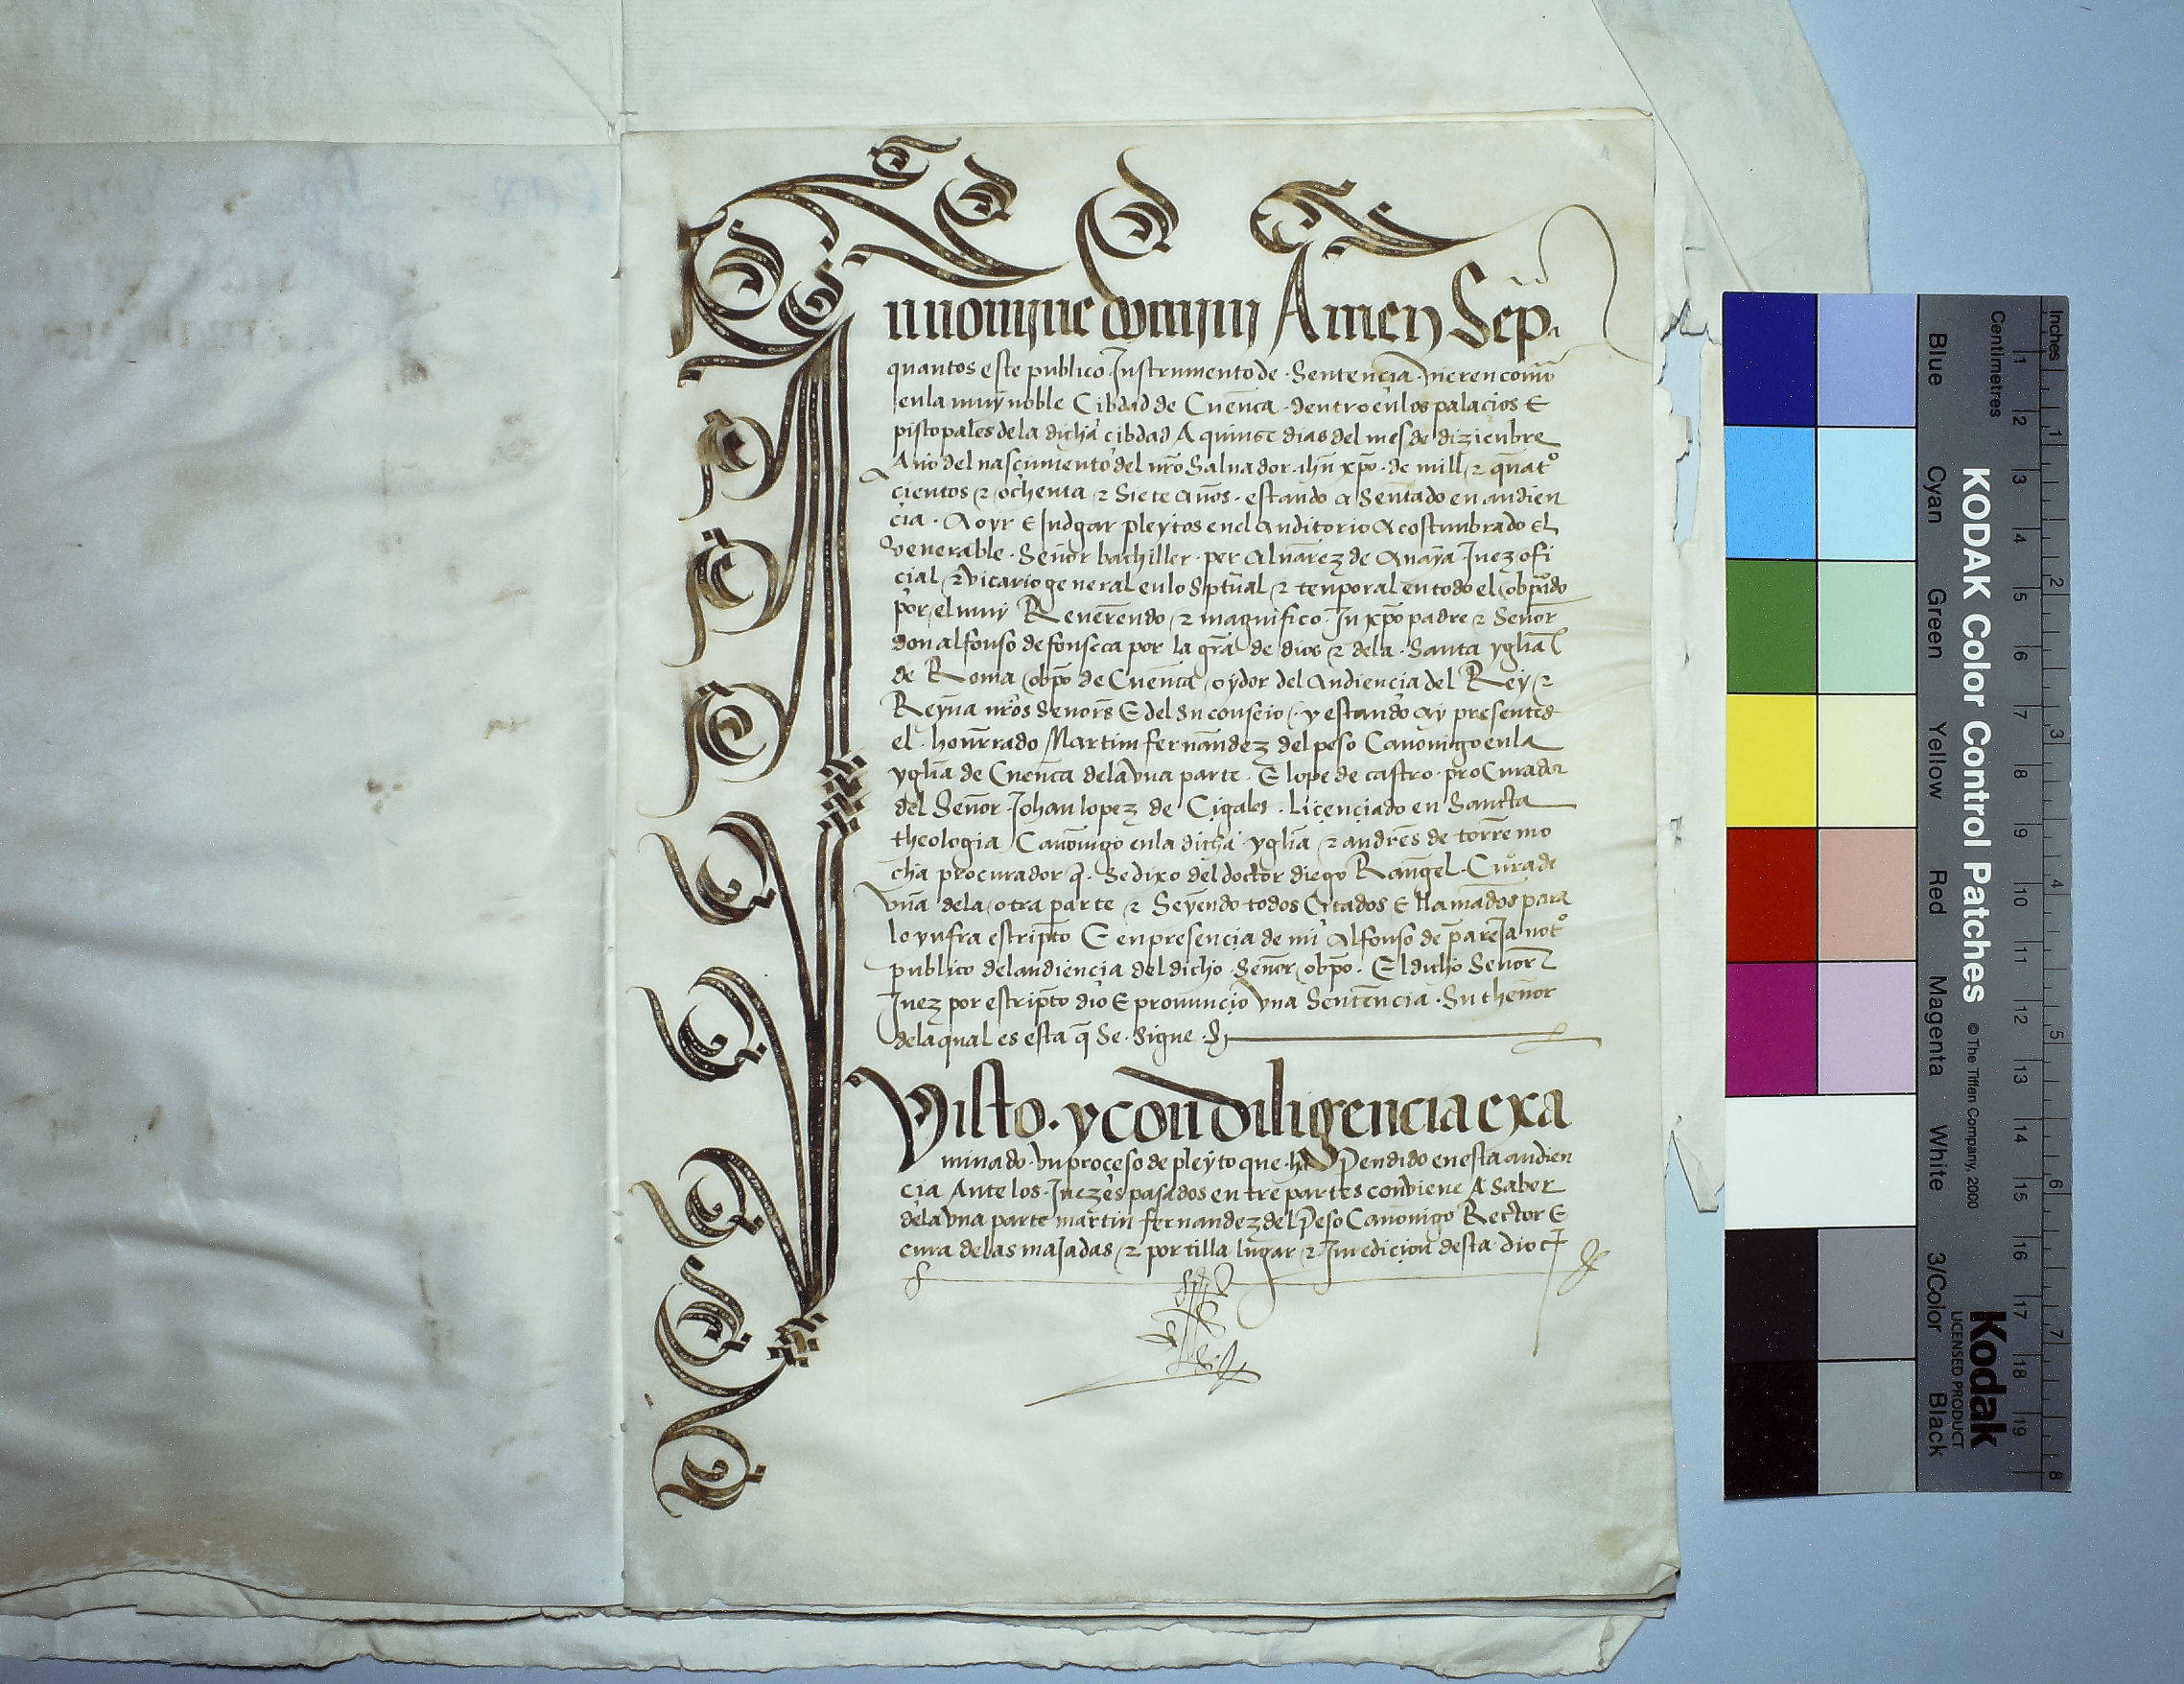 In nomine domini Amen Sepā
quantos este publico Instrumento de Sentencia vieren como
en la muy noble Cibdad de Cuenca dentro en los palacios E
piscopales de la dicha cibdad A quinse dias del mes de dizienbre
Año del nascimiento del nr̄o Salvador ihū xp̄o de mill τ quatº
cientos τ ochenta τ Siete años estando asentado en audien
cia A oyr E Judgar pleytos en el auditorio acostunbrado El
venerable Señor bachiller per alvarez de anaya Juez ofi
cial τ vicario general en lo Sp̄tual τ tenporal en todo el obp̄ado
por el muy Reverendo τ magnifico In xp̄o padre τ Señor
don alfonso de fonseca por la gr̄a de dios τ dela Santa yglīa
de Roma obp̄o de Cuenca oydor del Audiencia del Rey τ
Reyna nr̄os Señors E del su conseio y estando ay presentes
el honrrado Martin fernandez del peso Canonigo en la
yglīa de Cuenca dela vna parte E lope de castro procurador
del Señor Johan lopez de Cigales Licenciado en Sancta
theologia Canonigo en la dicha yglīa τ andres de torremo
cha procurador q̄ Se dixo del doctor diego Rangel Cura de
vña dela otra parte τ Seyendo todos Citados E llamados para
lo ynfra escripto E en presencia de mi Alfonso de pareja notº
publico del audiencia del dicho Señor obp̄o El dicho Señor
Juez por escripto dio E pronuncio vna Sentencia Su thenor
dela qual es esta q̄ Se Sigue
Visto y con diligencia exa
minado vn proceso de pleyto que ha Pendido en esta audien
cia Ante los Juezes pasados entre partes conviene A Saber
dela vna parte martin fernandez del Peso Canonigo Rector E
cura de las majadas τ portilla lugar τ Juredicion desta dioc
Inches
Centimetres
1 2 3 4 5 6 7 8
1 2 3 4 5 6 7 8 9 10 11 12 13 14 15 16 17 18 19
KODAK Color Control Patches © The Tiffen Company, 2000
Kodak
LICENSED PRODUCT
Blue Cyan Green Yellow Red Magenta White 3/Color Black